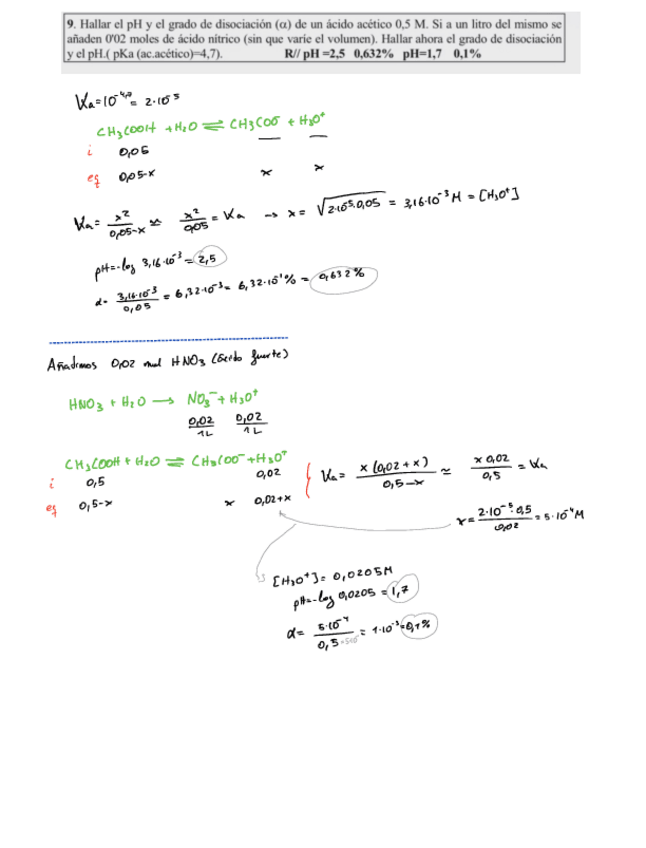 9. Hallar el pH y el grado de disociación (α) de un ácido acético 0,5 M. Si a un litro del mismo se
añaden 0'02 moles de ácido nítrico (sin que varíe el volumen). Hallar ahora el grado de disociación
y el pH.( pKa (ac.acético)=4,7). R// pH =2,5 0,632% pH=1,7 0,1%
Ka=10^-4,7 = 2·10^-5
CH3COOH + H2O ⇌ CH3COO^- + H3O^+
i 0,05 — —
eq 0,05-x x x
Ka = x^2/0,05-x ≃ x^2/0,05 = Ka → x = √2·10^-5·0,05 = 3,16·10^-3 M = [H3O^+]
pH=-log 3,16·10^-3 = 2,5
α = 3,16·10^-3/0,05 = 6,32·10^-3 = 6,32·10^-1 % = 0,632 %
Añadimos 0,02 mol HNO3 (ácido fuerte)
HNO3 + H2O → NO3^- + H3O^+
0,02/1L 0,02/1L
CH3COOH + H2O ⇌ CH3COO^- + H3O^+
i 0,5 0,02
eq 0,5-x x 0,02+x
Ka = x (0,02 + x)/0,5-x ≃ x 0,02/0,5 = Ka
x = 2·10^-5·0,5/0,02 = 5·10^-4 M
[H3O^+] = 0,0205M
pH=-log 0,0205 = 1,7
α = 5·10^-4/0,5 = 1·10^-3 = 0,1%